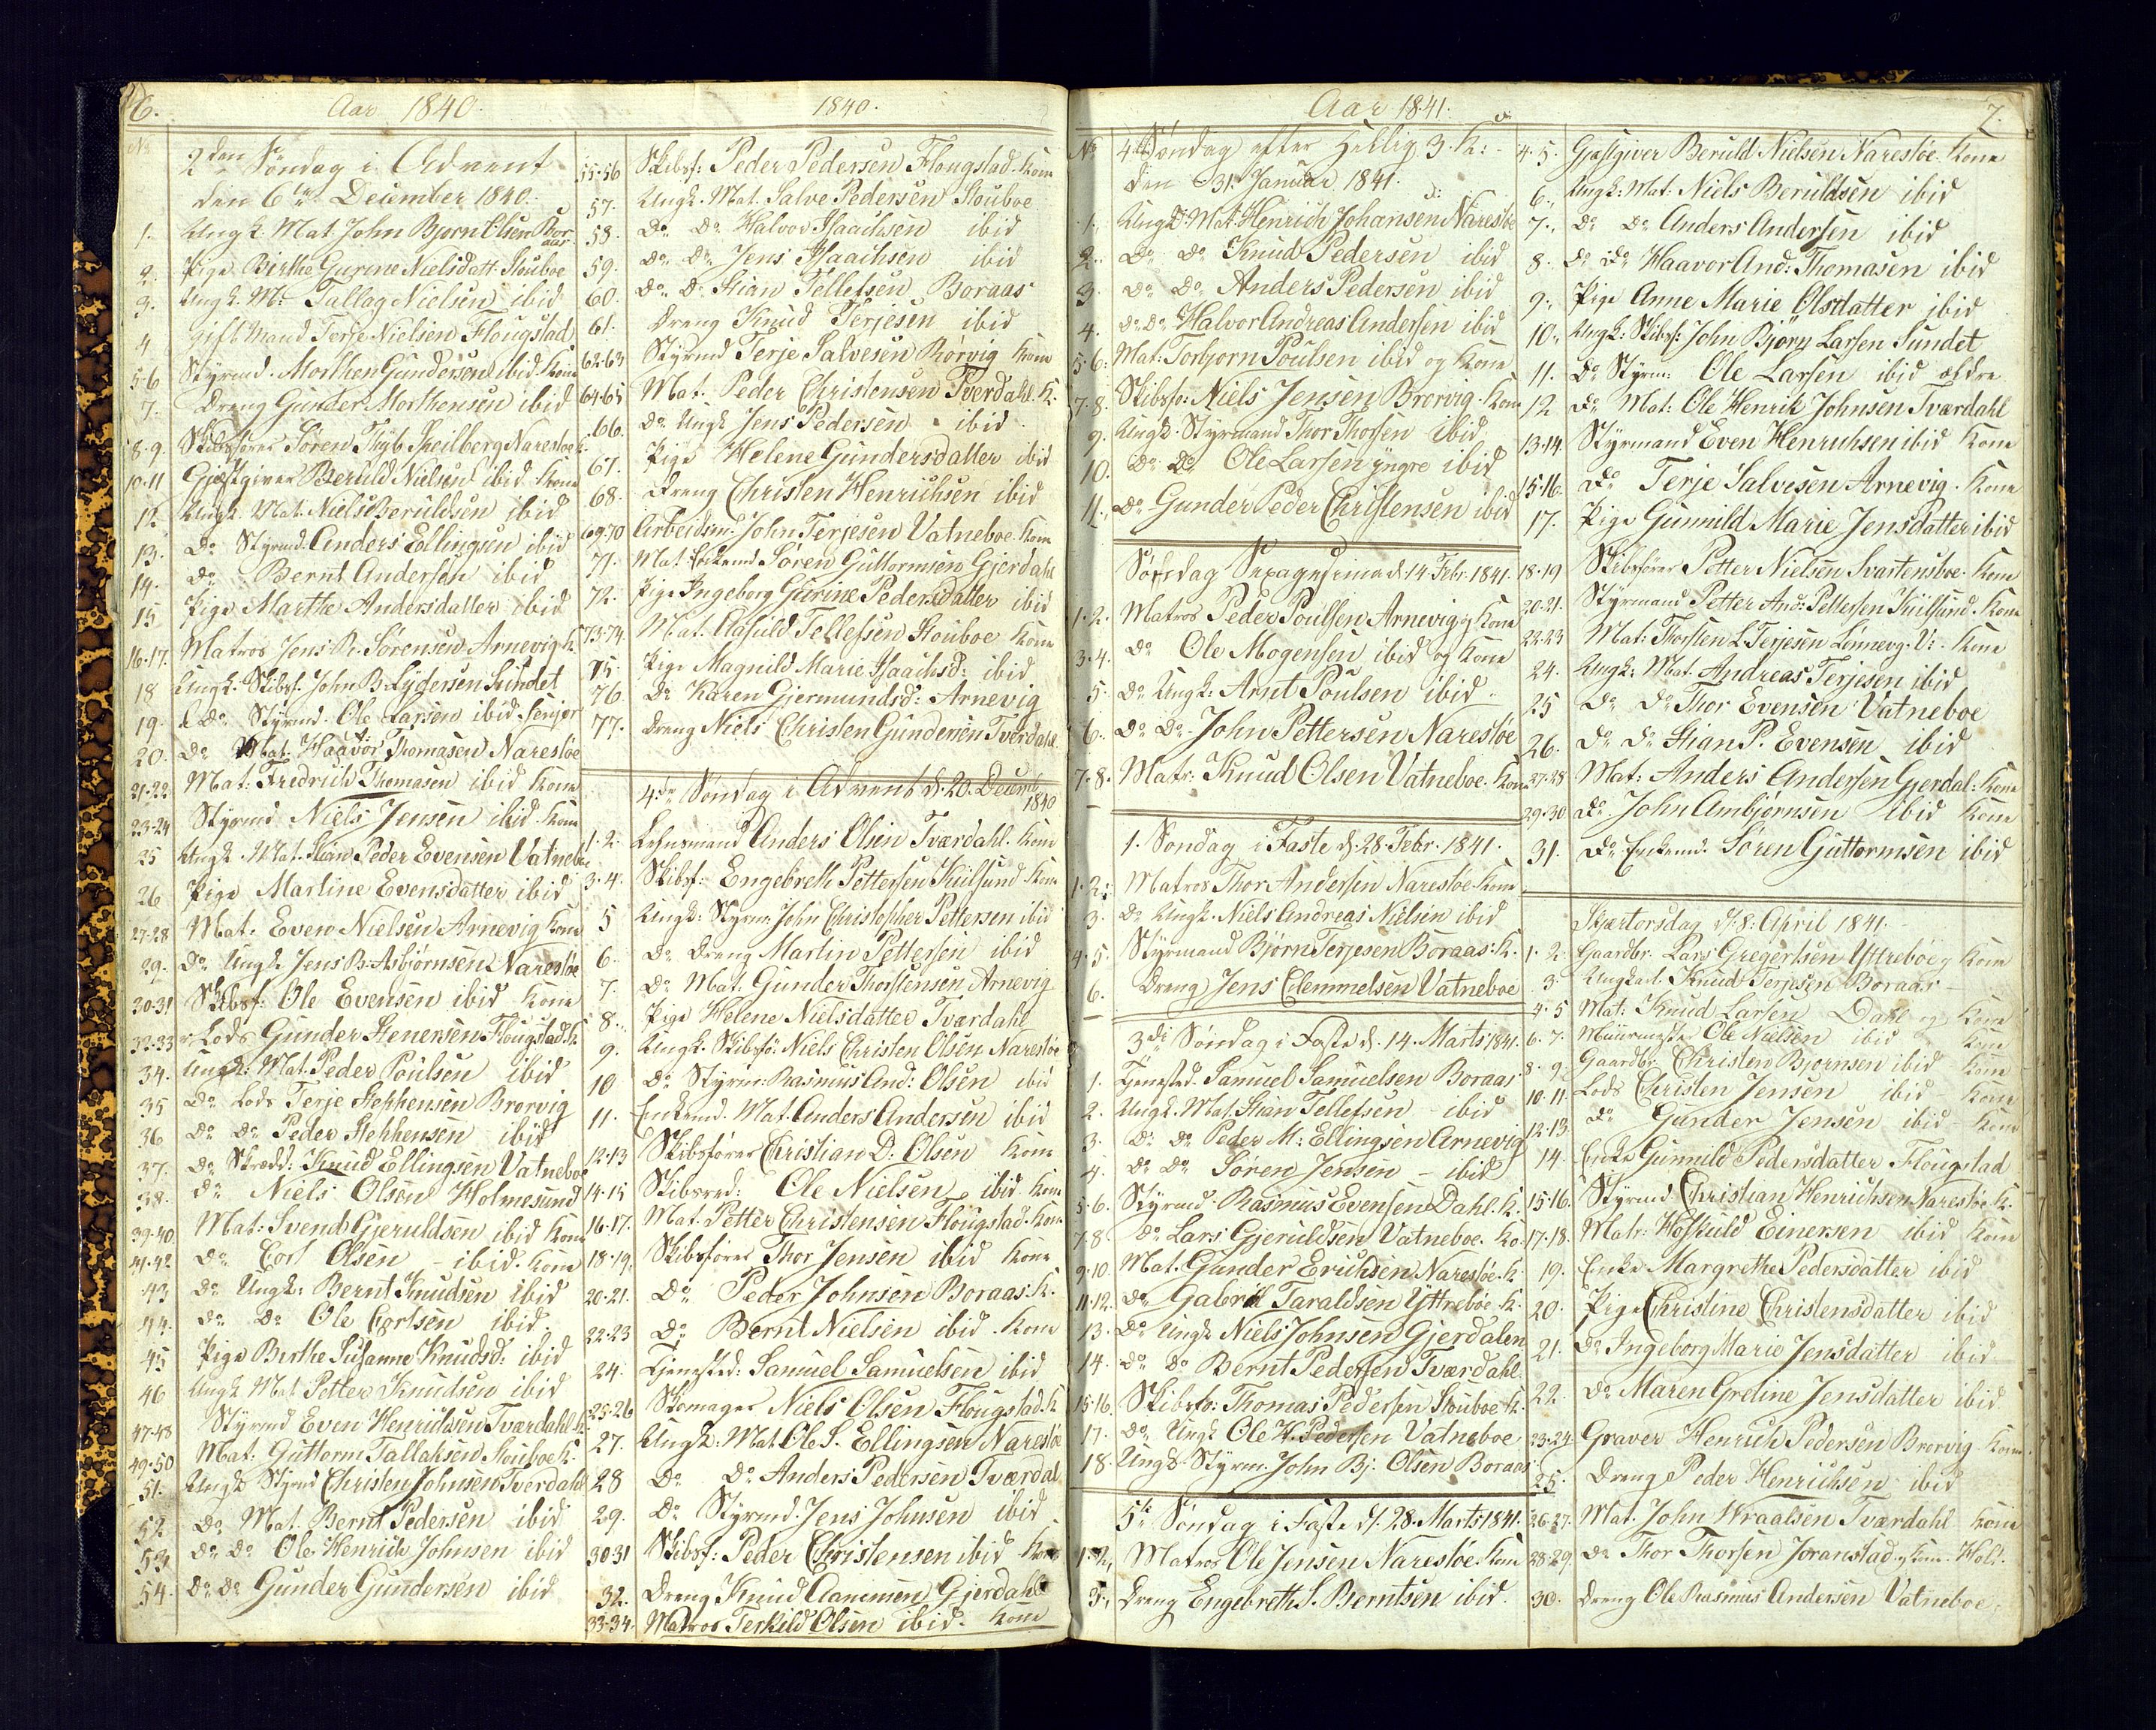 6. Aar 1840.
No
2den Søndag i Advent
den 6te December 1840.
1. Ungk. Mat. John Bjørn Olsen Boraas
2. Pige Birthe Gurine Nielsdatt: Stouboe
3. Ungk. M: Tallag Nielsen ibid
4 gift Mand Terje Nielsen Flougstad
5-6 Styrmd. Morthen Gundersen ibid. Kone
7. Dreng Gunder Morthensen ibid
8-9. Skibsfører Søren Thyb. Speilberg Narestøe K:
10-11 Gjæstgiver Beruld Nielsen ibid. Kone
12 Ungk. Mat. Niels Beruldsen ibid
13. Do Styrmd. Anders Ellingsen ibid
14. Do Bernt Andersen ibid
15 Pige Marthe Andersdatter ibid
16-17. Matros Jens Pr. Sørensen Arnevig K.
18 Ungk. Skibsf. John B. Lydersen Sundet
19. Do Styrmd. Ole Larsen ibid. senior
20. Do Mat. Haavor Thomasen Narestøe
21-22 Mat: Fredrich Thomasen ibid Kone
23-24 Styrmd Niels Jensen ibid. Kone
25 Ungk. Mat. Stian Peder Evensen Vatneboe
26 Pige Martine Evensdatter ibid
27-28 Mat. Even Nielsen Arnevig Kone
29. Do Ungk. Jens B. Asbjørnsen Narestøe
30-31 Skibsf: Ole Evensen ibid Kone
32-33 Lods Gunder Stenersen Flougstad. K
34. Ungk: Mat. Peder Poulsen ibid
35 Do Lods Terje Stephensen Brørvig
36 Do Do Peder Stephensen ibid
37. Do Skredd: Knud Ellingsen Vatneboe
38. Do Niels Olsen Holmesund
39-40. Mat: Svend Gjeruldsen ibid Kone
41-42 Do Carl Olsen - ibid. Kone
43 Do Ungk: Bernt Knudsen ibid
44. Do Do Ole Carlsen ibid.
45 Pige Birthe Susanne Knudsd: ibid
46 Ungk Mat Petter Knudsen ibid
47-48 Styrmd Even Henrichsen Tverdahl K.
49-50 Mat: Guttorm Tallaksen Stouboe K.
51. Ungk Styrmd Christen Johnsen Tverdahl
52 Do Mat. Bernt Pedersen ibid
53. Do Do Ole Henrich Johnsen ibid
54. Do Do Gunder Gundersen ibid
1840.
55-56 Skibsf: Peder Pedersen Flougstad. Kone
57. Ungk. Mat. Salve Pedersen Stouboe
58. Do Do Halvor Isaachsen ibid
59. Do Do Jens Isaachsen ibid
60. Do Do Stian Tellefsen Boraas
61. Dreng Knud Terjesen ibid
62-63 Styrmd Terje Salvesen Rørvig Kone
64-65 Mat. Peder Christensen Tverdahl. K.
66. Do Ungk Jens Pedersen ibid
67. Pige Helene Gundersdatter ibid
68. Dreng Christen Henrichsen ibid
69-70 Arbeidsm: John Terjesen Vatneboe. Kone
71. Mat. Enkemd Søren Guttormsen Gjerdahl
72. Pige Ingeborg Gurine Pedersdatter ibid
73-74 Mat. Aasuld Tellefsen Stouboe Kone
75. Pige Magnild Marie Isaachsd: ibid
76. Do Karen Gjermundsd: Arnevig
77. Dreng Niels Christen Gundersen Tverdahl
4de Søndag i Advent d. 20. Decemb 1840
1-2. Lensmand Anders Olsen Tværdahl. Kone
3-4. Skibsf: Engebreth Pettersen Kiilsund. Kone
5 Ungk: Styrm. John Christopher Pettersen ibid
6. Do Dreng Martin Pettersen ibid
7. Do Mat. Gunder Thorstensen Arnevig
8. Pige Helene Nielsdatter Tværdahl
9. Ungk. Skibsfø: Niels Christen Olsen Narestøe
10 Do Styrm: Rasmus And: Olsen ibid
11. Enkemd. Mat. Anders Andersen ibid
12-13 Skibsfører Christian D. Olsen Kone
14-15 Skibsred: Ole Nielsen ibid Kone
16-17. Mat. Petter Christensen Flougstad. Kone
18-19. Skibsfører Thor Jensen ibid Kone
20-21. Do Peder Johnsen Boraas. K.
22-23 Do Bernt Nielsen ibid. Kone
24. Tjenested: Samuel Samuelsen ibid
25-26 Skomager Niels Olsen Flougstad. K
27. Ungk. Mat Ole S. Ellingsen Narestøe
28 Do Do Anders Pedersen Tværdal
29. Do Styrmd. Jens Johnsen ibid
30-31 Skibsf: Peder Christensen ibid Kone
32. Dreng Knud Aanensen Gjerdahl
33-34. Matros Terkild Olsen ibid. Kone
Aar 1841.
No 4de Søndag efter Hellig 3. K:
den 31. Januar 1841.
1. Ungk. Mat. Henrich Johansen Narestøe
2. Do Do Knud Pedersen ibid
3. Do Do Anders Pedersen ibid
4. Do Do Halvor Andreas Andersen ibid
5-6. Mat: Torbjørn Poulsen ibid og Kone
7-8. Skibsfø: Niels Jensen Brørvig. Kone
9. Ungk. Styrmand Thor Thorsen ibid
10. Do Do Ole Larsen yngre ibid
11. Do Gunder Peder Christensen ibid
Søndag Sexagesima d. 14 Febr. 1841.
1-2. Matros Peder Poulsen Arnevig og Kone
3-4. Do Ole Mogensen ibid og Kone
5. Do Ungk: Arnt Poulsen ibid
6. Do Do John Pettersen Narestøe
7-8. Matr: Knud Olsen Vatneboe. Kone
1. Søndag i Faste d. 28. Febr. 1841.
1-2. Matros Thor Andersen Narestøe Kone
3. Do Ungk. Niels Andreas Nielsen ibid
4-5. Styrmand Bjørn Terjesen Boraas. K.
6. Dreng Jens Clemmetsen Vatneboe
3die Søndag i Faste d. 14. Marts 1841.
1. Tjenested. Samuel Samuelsen Boraas
2. Ungk. Mat. Stian Tellefsen - ibid
3. Do Do Peder M: Ellingsen Arnevig
4. Do Do Søren Jensen - ibid
5-6. Styrmd. Rasmus Evensen Dahl. K.
7-8. Do Lars Gjeruldsen Vatneboe. Ko.
9-10. Mat. Gunder Erichsen Narestøe. K.
11-12. Do Gabriel Taraldsen Yttrebøe K.
13. Do Ungk Niels Johnsen Gjerdalen
14. Do Do Bernt Pedersen Tværdahl
15-16. Skibsfø: Thomas Pedersen Stouboe K.
17. Do Ungk Ole H. Pedersen Vatneboe
18. Ungk. Styrm. John Bj. Olsen Boraas
5te Søndag i Faste d. 28. Marts 1841.
1-2. Matros Ole Jensen Narestøe. Kone
3. Dreng Engebreth S. Berntsen ibid.
7.
4-5. Gjæstgiver Beruld Nielsen Narestøe. Kone
6. Ungk: Mat: Niels Beruldsen ibid
7. Do Do Anders Andersen ibid
8. Do Do Haavor And: Thomasen ibid
9. Pige Anne Marie Olsdatter ibid
10. Ungk: Skibsf: John Bjørn Larsen Sundet
11. Do Styrm: Ole Larsen ibid ældre
12 Do Mat: Ole Henrik Johnsen Tværdahl
13-14. Styrmand Even Henrichsen ibid Kone
15-16. Do Terje Salvesen Arnevig. Kone
17. Pige Gunnild Marie Jensdatter ibid
18-19 Skibsfører Petter Nielsen Svartensboe. Kone
20-21. Styrmand Petter And: Pettersen Kiilsund. Kone
22-23 Mat: Thorsten L. Terjesen Kone
24. Ungk: Mat. Andreas Terjesen ibid
25 Do Do Thor Evensen Vatneboe
26. Do Do Stian P. Evensen ibid
27-28 Mat: Anders Andersen Gjerdal. Kone
29-30 Do John Ambjørnsen ibid Kone
31. Do Enkemd. Søren Guttormsen ibid
Skjærtorsdag d. 8: April 1841.
1-2. Gaardbr. Lars Gregersen Yttrebøe og Kone
3. Ungkarl Knud Terjesen Boraas
4-5 Mat: Knud Larsen Dahl og Kone
6-7. Muurmester Ole Nielsen ibid og Kone
8-9. Gaardbr. Christen Bjørnsen ibid Kone
10-11 Lods Christen Jensen ibid Kone
12-13. Do Gunder Jensen ibid Kone
14. Enke Gunnild Pedersdatter Flougstad
15-16. Styrmd Christian Henrichsen Narestøe K.
17-18. Matr: Høskuld Einersen ibid Kone
19. Enke Margrethe Pedersdatter ibid
20. Pige Christine Christensdatter ibid
21. Do Ingeborg Marie Jensdatter ibid
22. Do Maren Gretine Jensdatter ibid
23-24 Graver Henrich Pedersen Brørvig. Kone
25. Dreng Peder Henrichsen ibid
26-27. Mat. John Wraalsen Tværdahl Kone
28-29. Do Thor Thorsen Joranstad. og Kone. Holt.
30. Dreng Ole Rasmus Andersen Vatneboe.